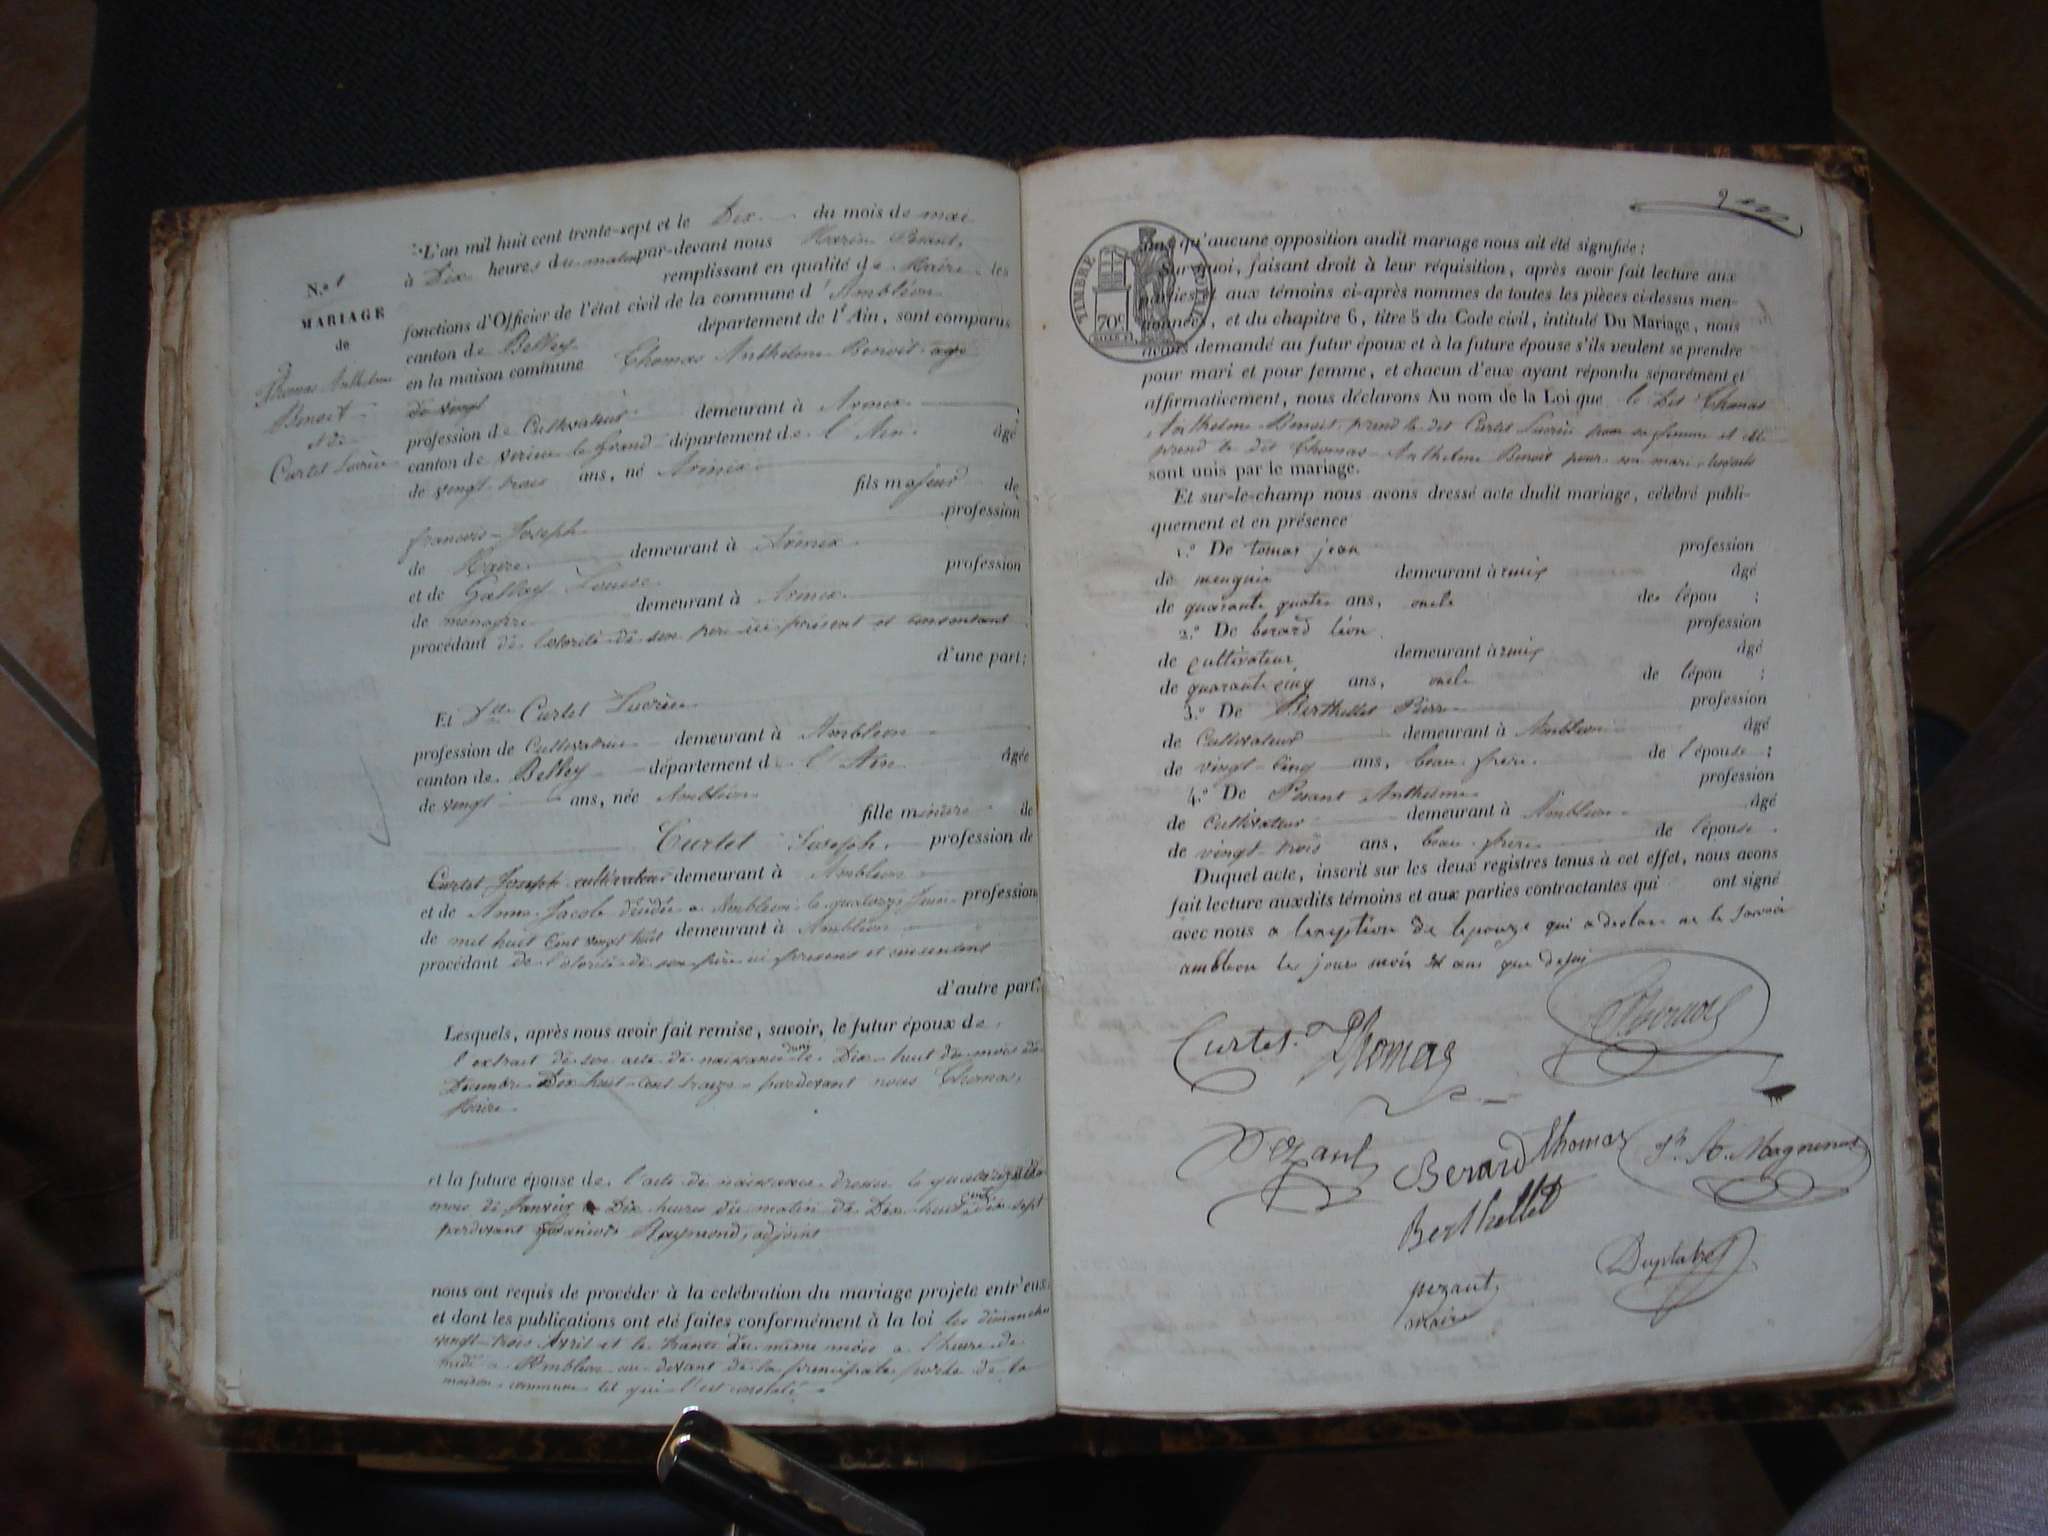 N.° 1
MARIAGE
de
Thomas Anthelme
Benoit
et de
Curtet Lucrèce
L'an mil huit cent trente-sept et le Dix du mois de mai
à Dix heures du matin par-devant nous Marin Pezant,
remplissant en qualité de Maire les
fonctions d'Officier de l'état civil de la commune d'Ambléon
canton de Belley département de l'Ain, sont comparus
en la maison commune Thomas Anthelme Benoit age
de vingt
profession de Cultivateur demeurant à Armix
canton de virieu le Grand département de l'Ain âgé
de vingt trois ans, né Armix
fils majeur de
francois-Joseph profession
de Maire demeurant à Armix
et de Gallay Louise profession
de menagère demeurant à Armix
procédant de l'otorité de son pere ici present et consentant
d'une part;
Et Dlle Curtet Lucrèce
profession de Cultivatrice demeurant à Ambleon
canton de Belley département de l'Ain âgée
de vingt ans, née Ambléon
fille mineure de
Curtet Joseph, profession de
Curtet Joseph cultivateur demeurant à Ambleon
et de Anne Jacob décédée a Ambleon le quatorze Juin profession
de mil huit Cent vingt huit demeurant à Ambleon
procédant de l'otorité de son père ici present et consentent
d'autre part;
Lesquels, après nous avoir fait remise, savoir, le futur époux de
l'extrait de son acte de naissance le Dix-huit du mois de
Décembre Dix huit-cent traize pardevant nous Thomas,
Maire
et la future épouse de l'acte de naissance dressé le
mois de Janvier a Dix heures du matin de Dix huit cent dix sept
pardevant Raymond, adjoint
nous ont requis de procéder à la célébration du mariage projeté entr'eux,
et dont les publications ont été faites conformément à la loi les dimanches
vingt-trois Avril et le trente du même mois a l'heure de
midi a Ambleon au devant de la principale porte de la
maison commune tel qui l'est constaté
TIMBRE ROYAL
70c
qu'aucune opposition audit mariage nous ait été signifiée;
Sur quoi, faisant droit à leur réquisition, après avoir fait lecture aux
parties et aux témoins ci-après nommés de toutes les pièces ci-dessus men-
tionnées, et du chapitre 6, titre 5 du Code civil, intitulé Du Mariage, nous
avons demandé au futur époux et à la future épouse s'ils veulent se prendre
pour mari et pour femme, et chacun d'eux ayant répondu séparément et
affirmativement, nous déclarons Au nom de la Loi que le Dit Thomas
Anthelme Benoit prend la dit Curtet Lucrèce pour sa femme et elle
prend le dit Thomas Anthelme Benoit pour son mari
sont unis par le mariage.
Et sur-le-champ nous avons dressé acte dudit mariage, célébré publi-
quement et en présence
1.° De tomas jean profession
de demeurant à rmix âgé
de quarante quatre ans, oncle de lépou ;
2.° De berard léon profession
de cultivateur demeurant à rmix âgé
de quarante cinq ans, oncle de lépou ;
3.° De Berthellet Pierre profession
de Cultivateur demeurant à Ambleon âgé
de vingt-Cinq ans, beau-frere de l'épouse ;
4.° De Pezant Anthelme profession
de Cultivateur demeurant à Ambleon âgé
de vingt-trois ans, beau-frere de l'épouse
Duquel acte, inscrit sur les deux registres tenus à cet effet, nous avons
fait lecture auxdits témoins et aux parties contractantes qui ont signé
avec nous a lexsption de lepouze qui a declare ne le savoir
ambleon les jours mois et ans que desus
Curtet
Thomas
Pezant
Berard
Thomas
Magnin
Berthellet
Duplatre
pezant,
maire